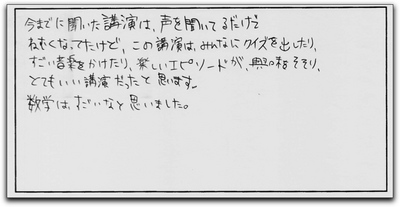 今までに聞いた講演は、声を聞いてるだけで
ねむくなってたけど、この講演は、みんなにクイズを出したり、
すごい音楽をかけたり、楽しいエピソードが、興味をそそり、
とてもいい講演だったと思います。
数学は、すごいなと思いました。